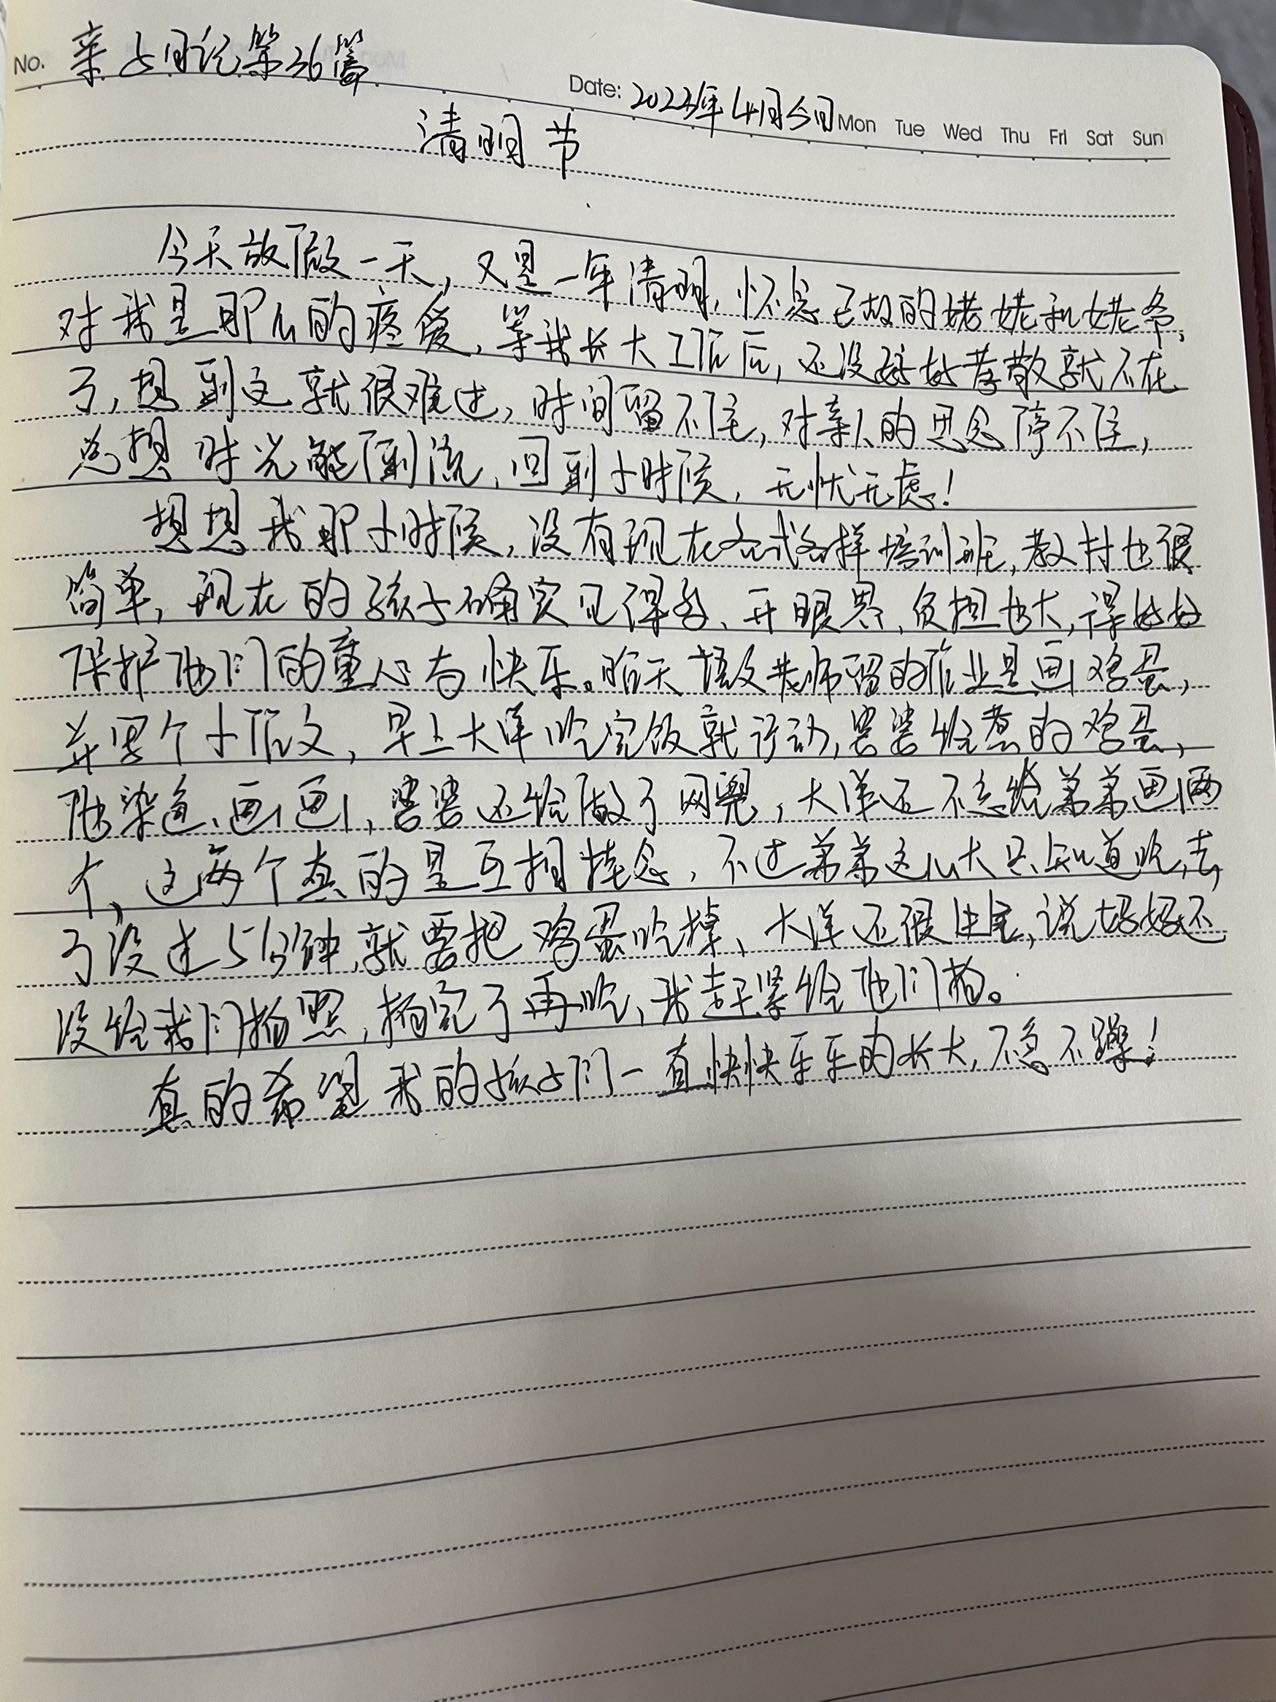 No. 亲子日记第36篇
Date: 2023年4月5日 Mon Tue Wed Thu Fri Sat Sun
清明节
今天放假一天，又是一年清明，怀念已故的姥姥和姥爷，
对我是那么的疼爱，等我长大工作后，还没好好孝敬就不在
了，想到这就很难过，时间留不住，对亲人的思念停不住，
总想时光能倒流，回到小时候，无忧无虑！
想想我那小时候，没有现在各式各样培训班，教材也很
简单，现在的孩子确实见得多、开眼界、负担也大，得好好
保护他们的童心与快乐。昨天语文老师留的作业是画鸡蛋，
并写个小作文，早上大洋吃完饭就行动，婆婆给煮的鸡蛋，
他染色、画画，婆婆还给做了网兜，大洋还不忘给弟弟画两
个，这两个真的是互相挂念，不过弟弟这么大只知道吃，去
了没过5分钟，就要把鸡蛋吃掉、大洋还很生气，说妈妈还
没给我们拍照，拍完了再吃，我赶紧给他们拍。
真的希望我的孩子们一直快快乐乐的长大，不急不躁！